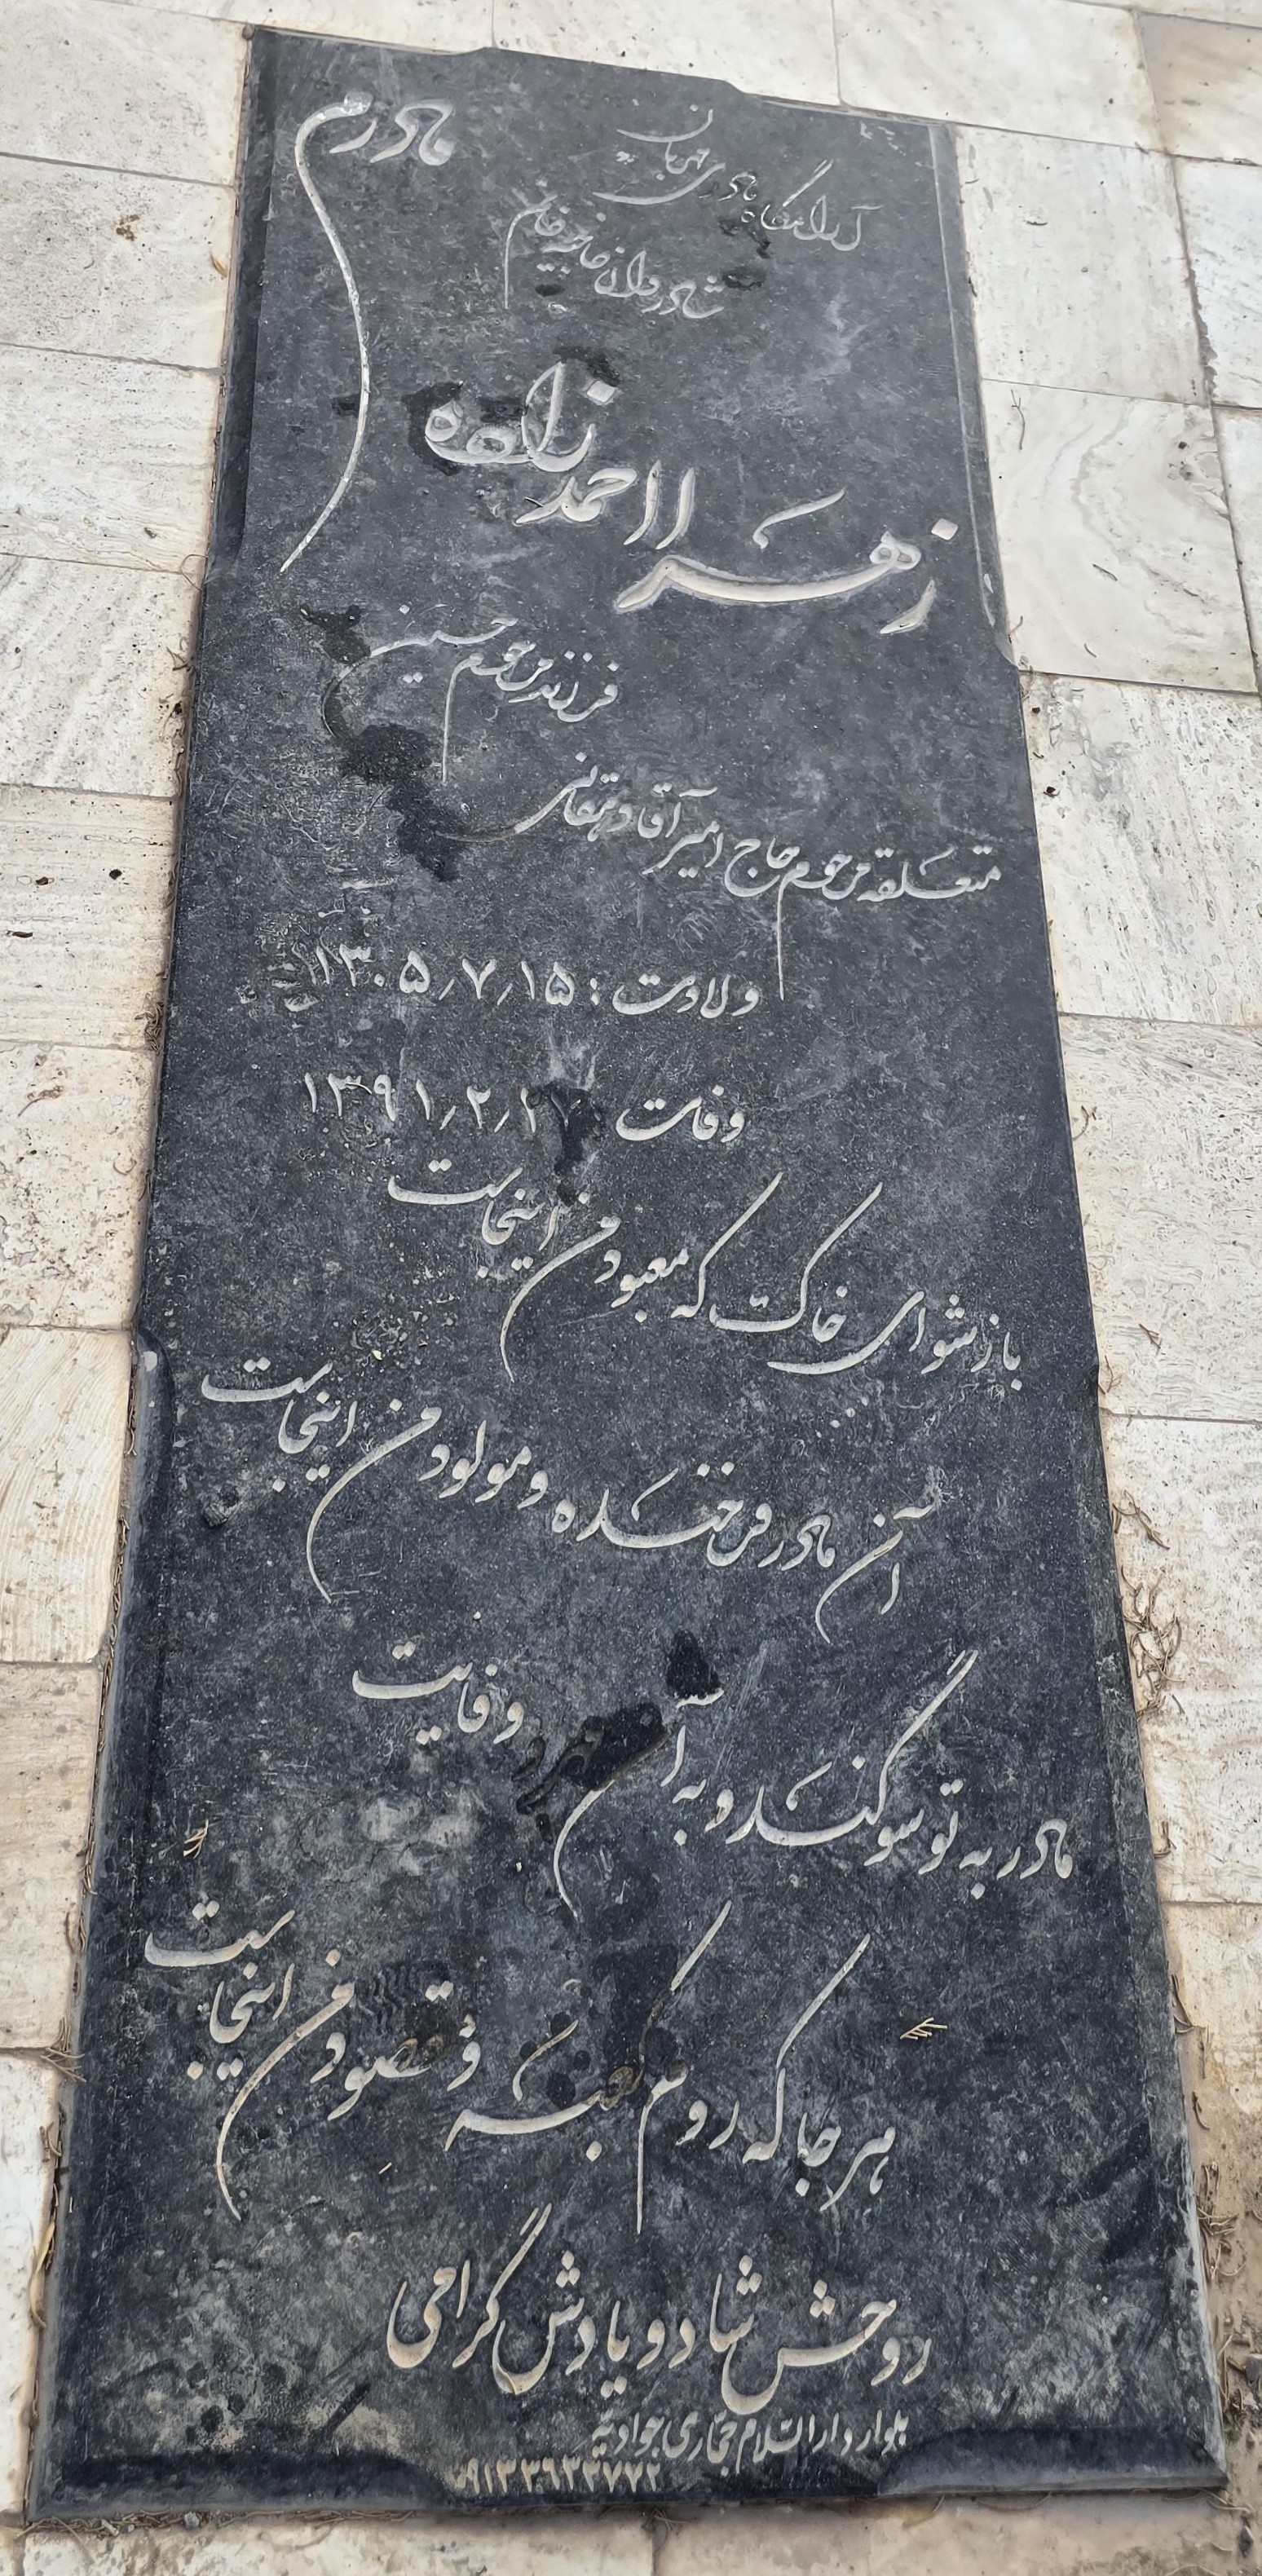 مادرم
آرامگاه مادری مهربان
شادروان حاجیه خانم
زهرا احمدزاده
فرزند مرحوم حسین
متعلقه مرحوم حاج امیرآقا دهقانی
ولادت : ۱۳۰۵/۷/۱۵
وفات ۱۳۹۱/۲/۲۷
باز شو ای خاک که معبود من اینجاست
آن مادر فرخنده و مولود من اینجاست
مادر به تو سوگند و به آن مهر و وفایت
هر جا که روم کعبه و مقصود من اینجاست
روحش شاد و یادش گرامی
بلوار دارالسلام حجاری جوادیه
۰۹۱۳۳۶۳۳۷۷۲